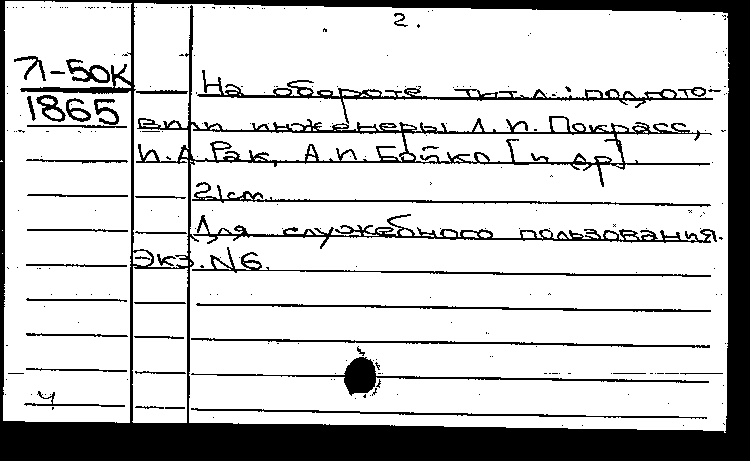 2.
71-50К
1865
На обороте тит.л.: подгото-
вили инженеры Л.П. Покрасс,
И.А. Рак, А.П. Бойко [и др].
21см.
Для служебного пользования.
Экз. N6.
Ч